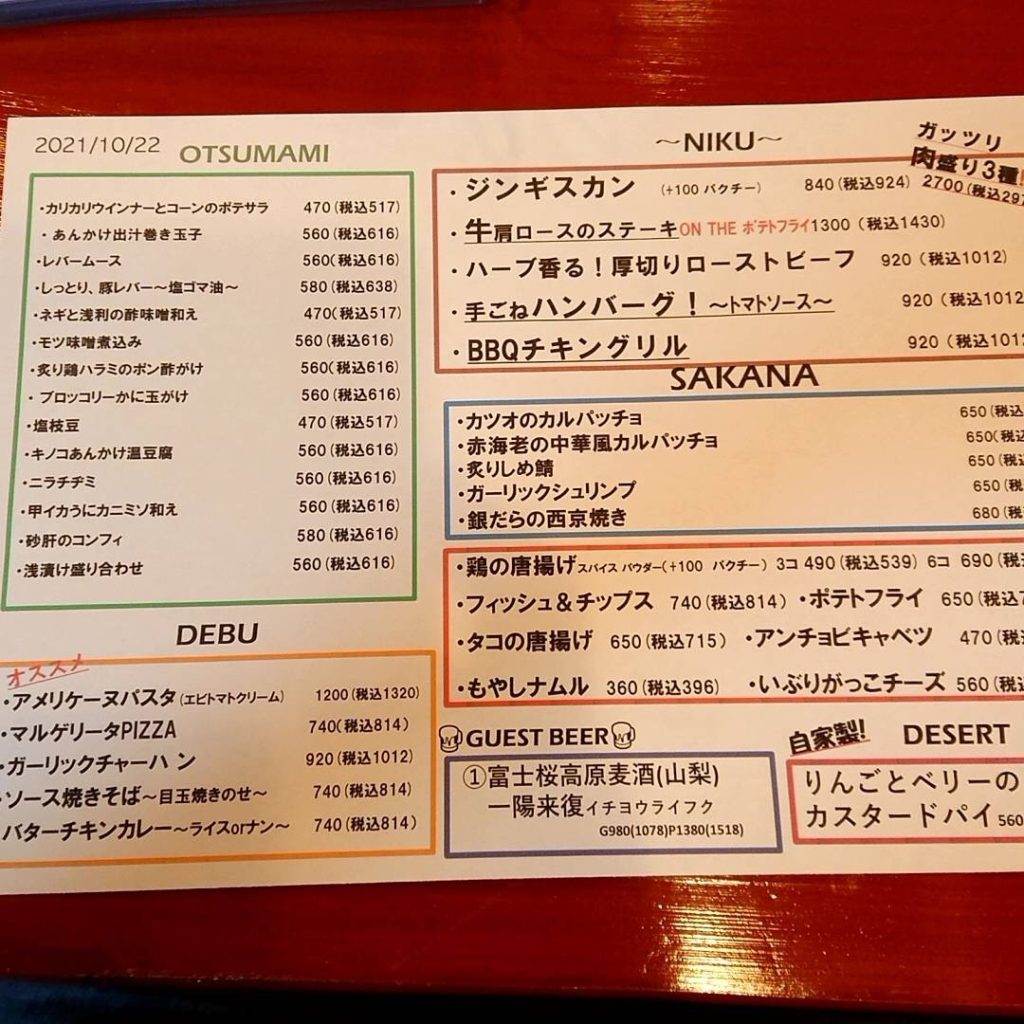 2021/10/22
OTSUMAMI
・カリカリウインナーとコーンのポテサラ 470(税込517)
・あんかけ出汁巻き玉子 560(税込616)
・レバームース 560(税込616)
・しっとり、豚レバー～塩ゴマ油～ 580(税込638)
・ネギと浅利の酢味噌和え 470(税込517)
・モツ味噌煮込み 560(税込616)
・炙り鶏ハラミのポン酢がけ 560(税込616)
・ブロッコリーかに玉がけ 560(税込616)
・塩枝豆 470(税込517)
・キノコあんかけ温豆腐 560(税込616)
・ニラチヂミ 560(税込616)
・甲イカうにカニミソ和え 560(税込616)
・砂肝のコンフィ 580(税込616)
・浅漬け盛り合わせ 560(税込616)
DEBU
オススメ
・アメリケーヌパスタ(エビトマトクリーム) 1200(税込1320)
・マルゲリータPIZZA 740(税込814)
・ガーリックチャーハン 920(税込1012)
・ソース焼きそば～目玉焼きのせ～ 740(税込814)
バターチキンカレー～ライスorナン～ 740(税込814)
～NIKU～
ガッツリ
肉盛り3種!
2700(税込29
・ジンギスカン (+100 パクチー) 840(税込924)
・牛肩ロースのステーキON THE ポテトフライ1300(税込1430)
・ハーブ香る！厚切りローストビーフ 920(税込1012)
・手ごねハンバーグ！～トマトソース～ 920(税込1012
・BBQチキングリル 920(税込1012
SAKANA
・カツオのカルパッチョ 650(税込
・赤海老の中華風カルパッチョ 650(税込
・炙りしめ鯖 650(税込
・ガーリックシュリンプ 650(税
・銀だらの西京焼き 680(税
・鶏の唐揚げスパイス パウダー(+100 パクチー) 3コ 490(税込539) 6コ 690(税
・フィッシュ&チップス 740(税込814) ・ポテトフライ 650(税込7
・タコの唐揚げ 650(税込715) ・アンチョビキャベツ 470(税
・もやしナムル 360(税込396) ・いぶりがっこチーズ 560(税
GUEST BEER
①富士桜高原麦酒(山梨)
一陽来復イチヨウライフク
G980(1078)P1380(1518)
自家製!
DESERT
りんごとベリーの
カスタードパイ560